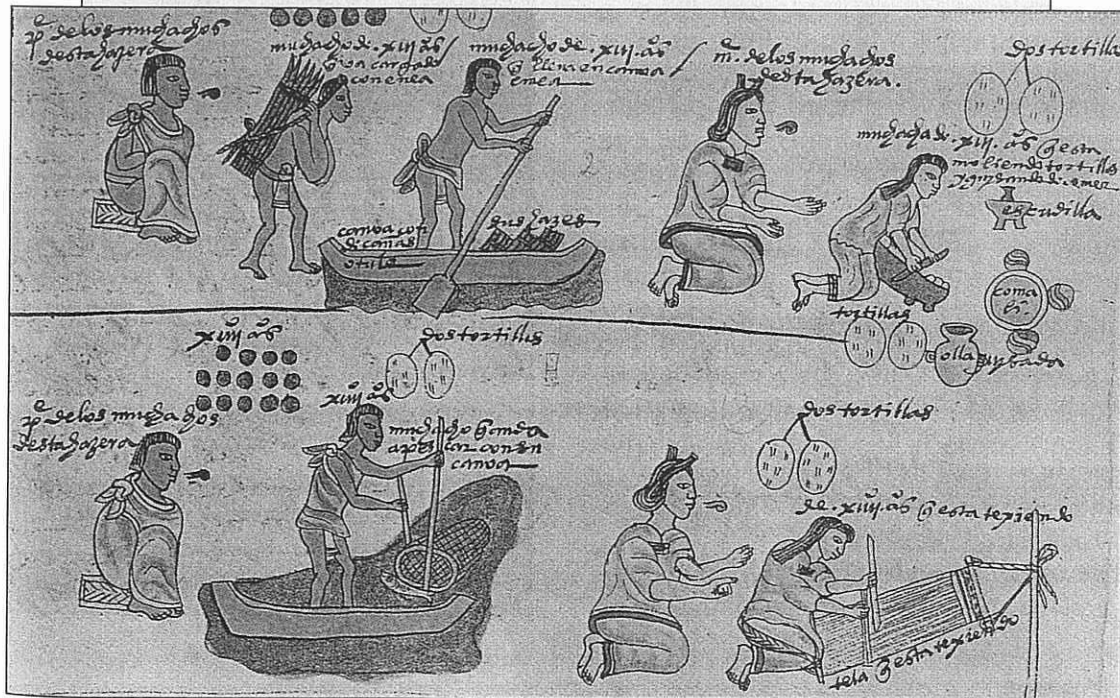 pe. de los muchachos
desta hazera
muchacho de .xiij. años
que va cargado
con enea
muchacho de .xiij. años
que lleva en canoa
enea
me. de los muchachos
desta hazera.
dos tortillas
muchacha de .xiij. años que esta
moliendo tortillas
y guisando de comer
escudilla
canoa con
sus hazes
tortillas
olla
xiiij años
dos tortillas
pe. de los muchachos
desta hazera
xiiij años
muchacho que anda
a pescar con en
canoa
dos tortillas
de .xiiij. años que esta texiendo
tela que esta texiendo